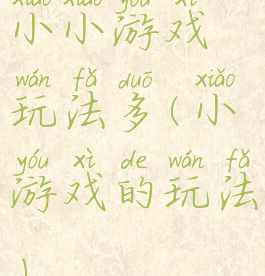 xiǎo xiǎo yóu xì
小小游戏
wán fǎ duō xiǎo
玩法多(小
yóu xì de wán fǎ
游戏的玩法
)